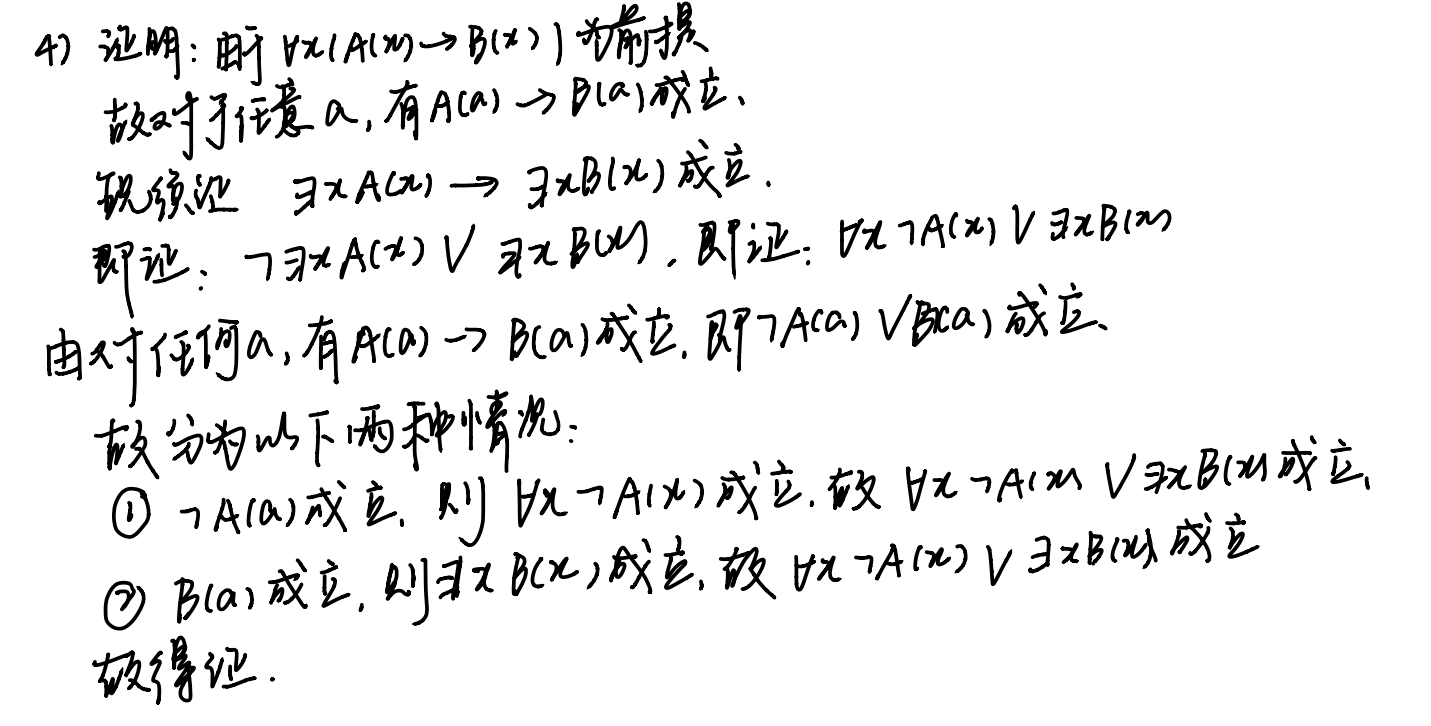 4) 证明: 由于 ∀x(A(x)→B(x)) 为前提
故对于任意 a, 有 A(a)→B(a) 成立.
现须证 ∃xA(x) → ∃xB(x) 成立.
即证: ¬∃xA(x) ∨ ∃xB(x). 即证: ∀x¬A(x) ∨ ∃xB(x)
由对任何a, 有 A(a)→B(a) 成立. 即¬A(a) ∨B(a) 成立.
故分为以下两种情况:
① ¬A(a) 成立, 则 ∀x¬A(x) 成立. 故 ∀x¬A(x) ∨∃xB(x) 成立.
② B(a) 成立, 则∃xB(x) 成立, 故 ∀x¬A(x) ∨ ∃xB(x) 成立
故得证.